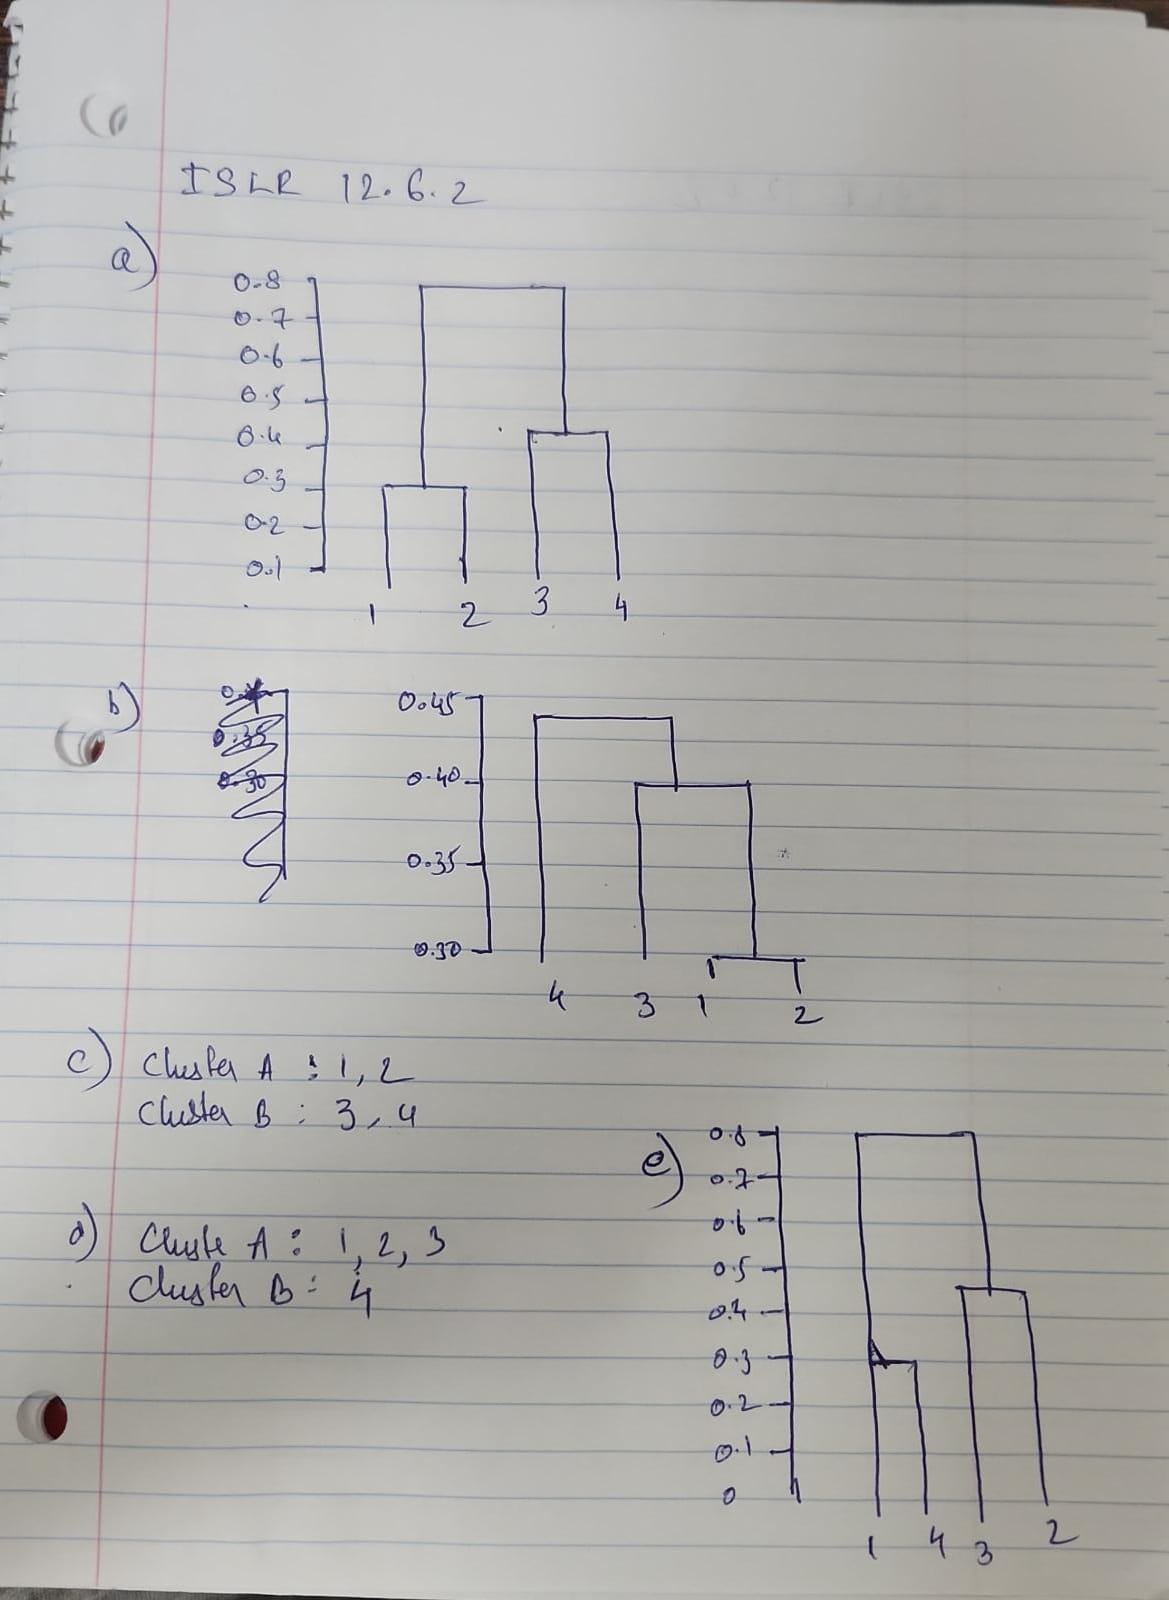 ISLR 12.6.2
a)
0.8
0.7
0.6
0.5
0.4
0.3
0.2
0.1
1 2 3 4
b)
0.35
0.30
0.45
0.40
0.35
0.30
4 3 1 2
c) Cluster A : 1, 2
Cluster B : 3, 4
d) Cluste A : 1, 2, 3
Cluster B : 4
e)
0.8
0.7
0.6
0.5
0.4
0.3
0.2
0.1
0
1 4 3 2